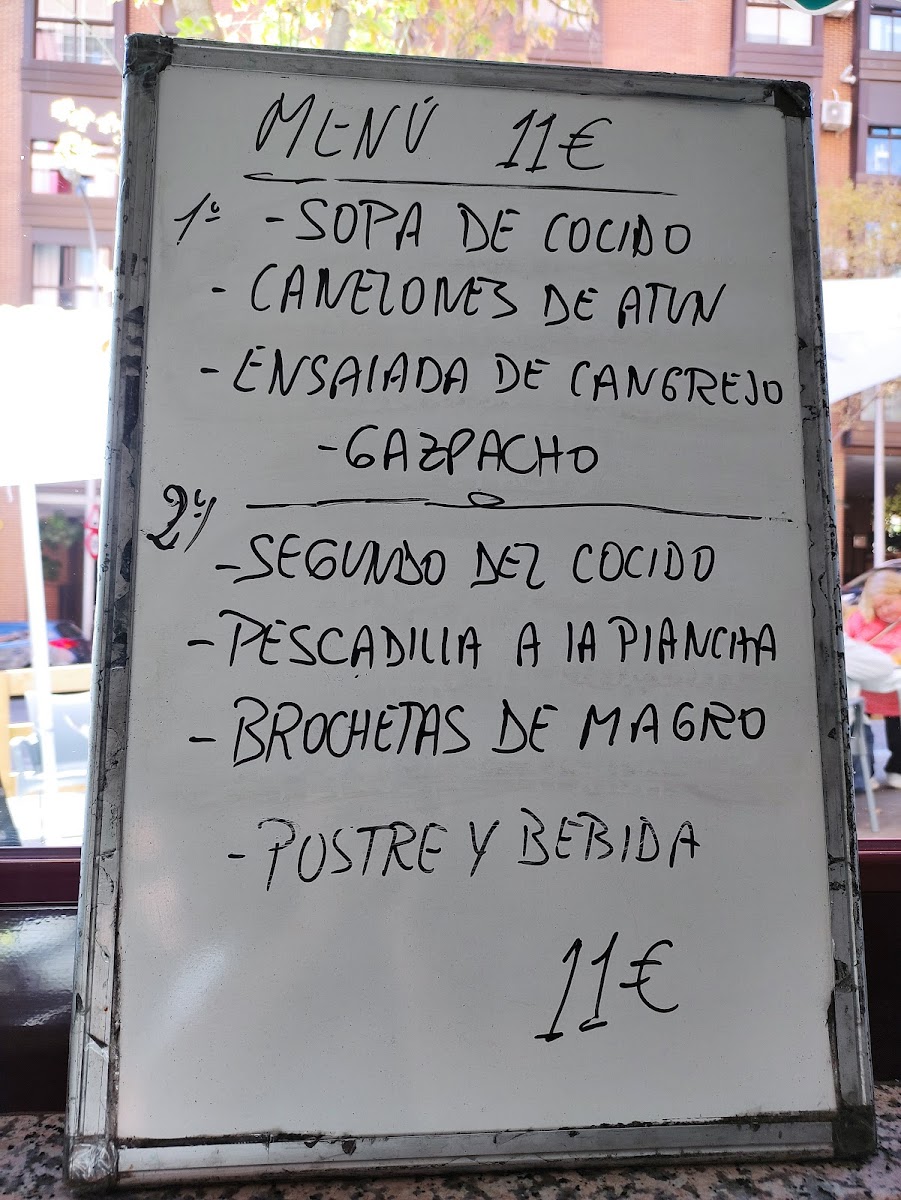 MENÚ 11€
1º - SOPA DE COCIDO
- CANELONES DE ATUN
- ENSALADA DE CANGREJO
- GAZPACHO
2º
- SEGUNDO DEL COCIDO
- PESCADILLA A LA PLANCHA
- BROCHETAS DE MAGRO
- POSTRE Y BEBIDA
11€